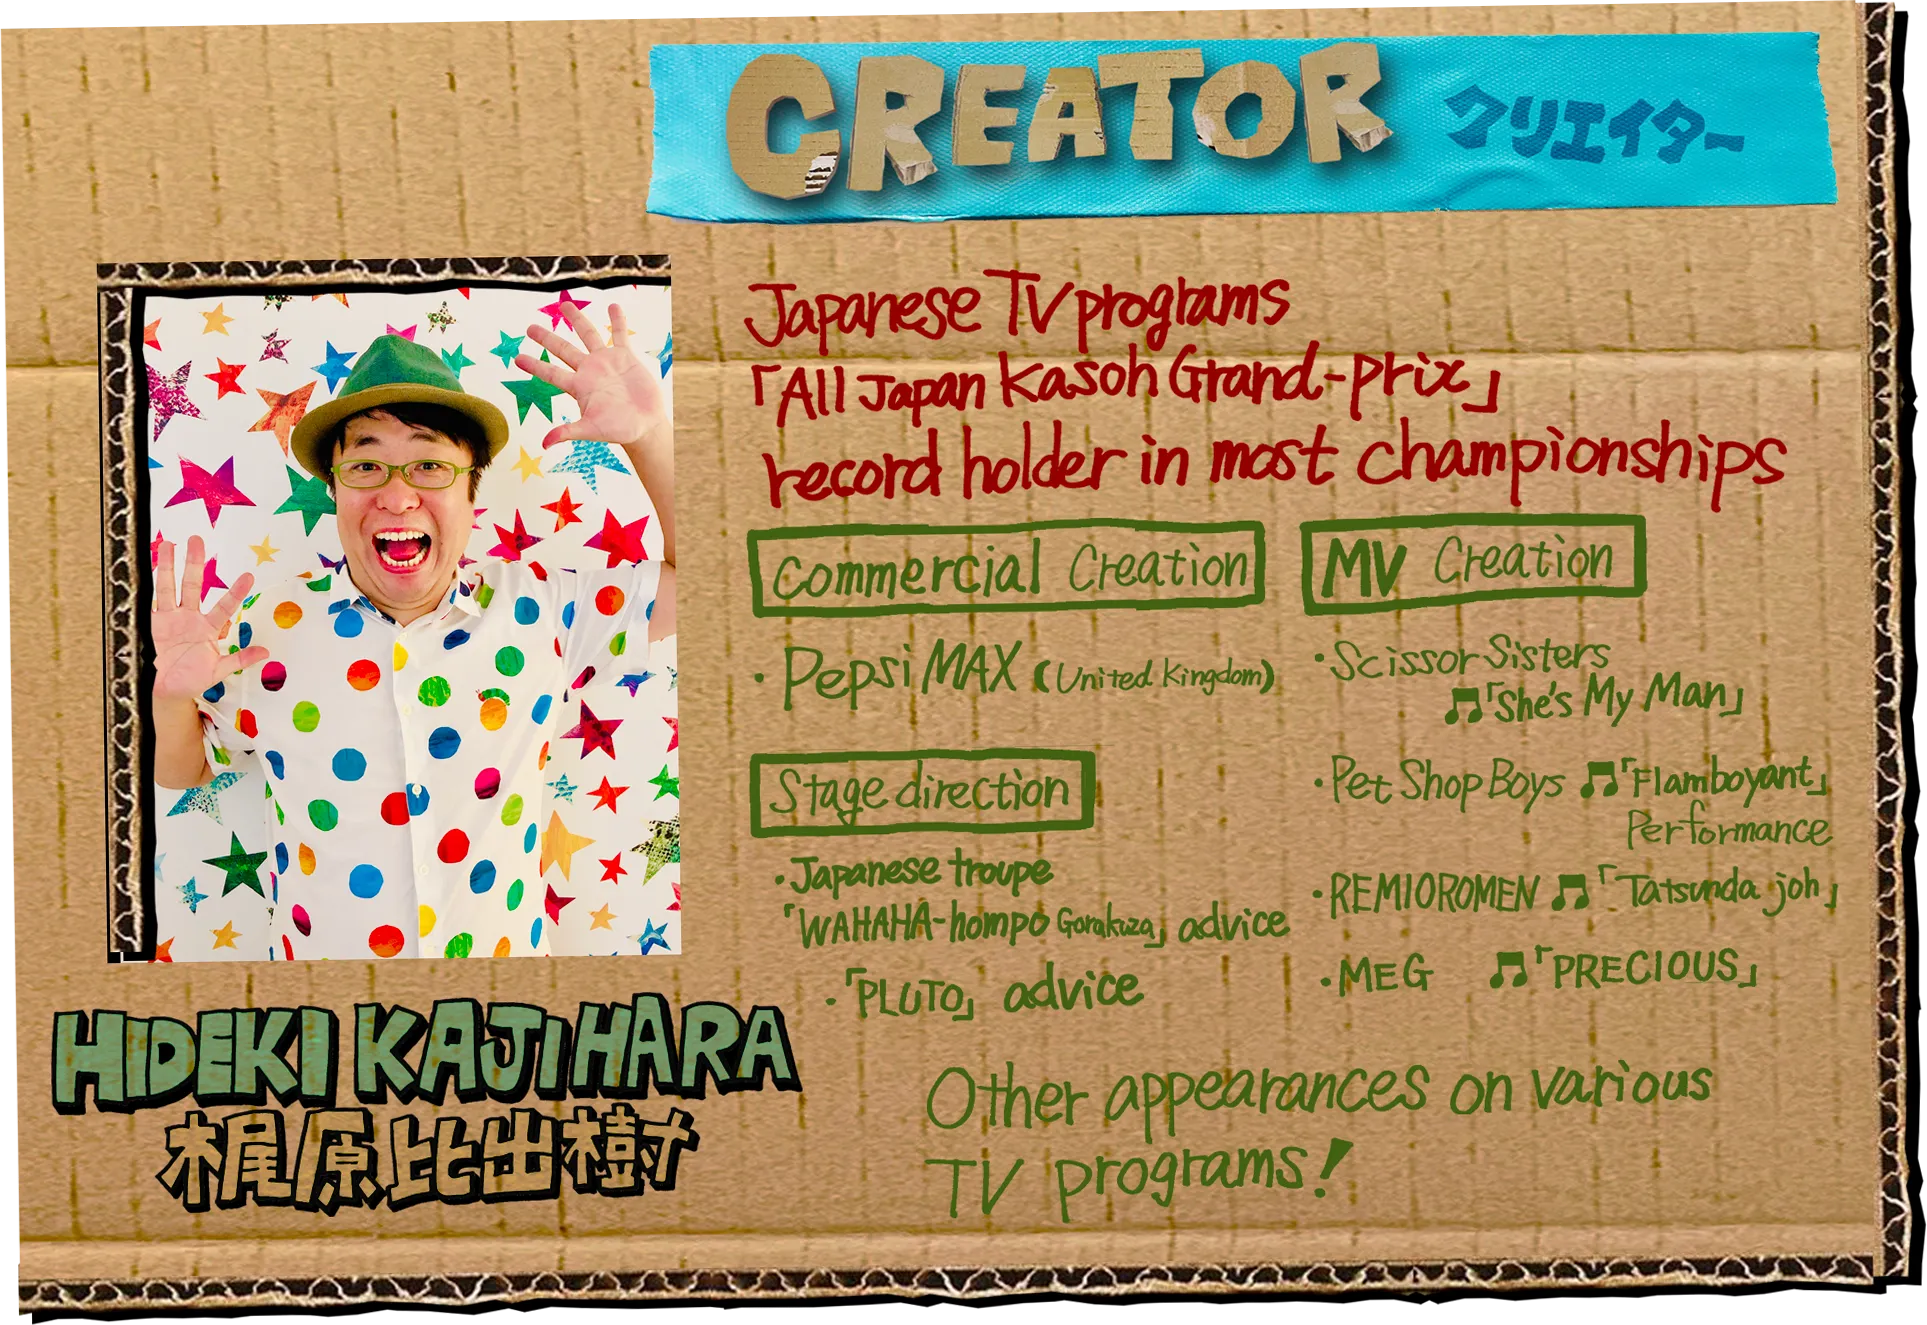 CREATOR クリエイター
Japanese TV programs
「All Japan Kasoh Grand-prix」
record holder in most championships
Commercial Creation
・Pepsi MAX (United Kingdom)
Stage direction
・Japanese troupe
「WAHAHA-hompo Gorakuza」 advice
・「PLUTO」 advice
MV Creation
・Scissor Sisters
♫「She's My Man」
・Pet Shop Boys ♫「Flamboyant」
Performance
・REMIOROMEN ♫「Tatsunda joh」
・MEG ♫「PRECIOUS」
Other appearances on various
TV programs!
HIDEKI KAJIHARA
梶原比出樹